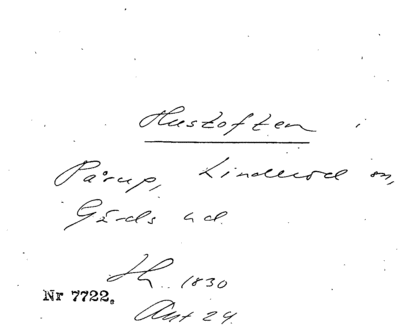 Hustoften i
Pårup, Linderöd sn,
Gärds hd.
1830
Nr 7722.
Ant 24.